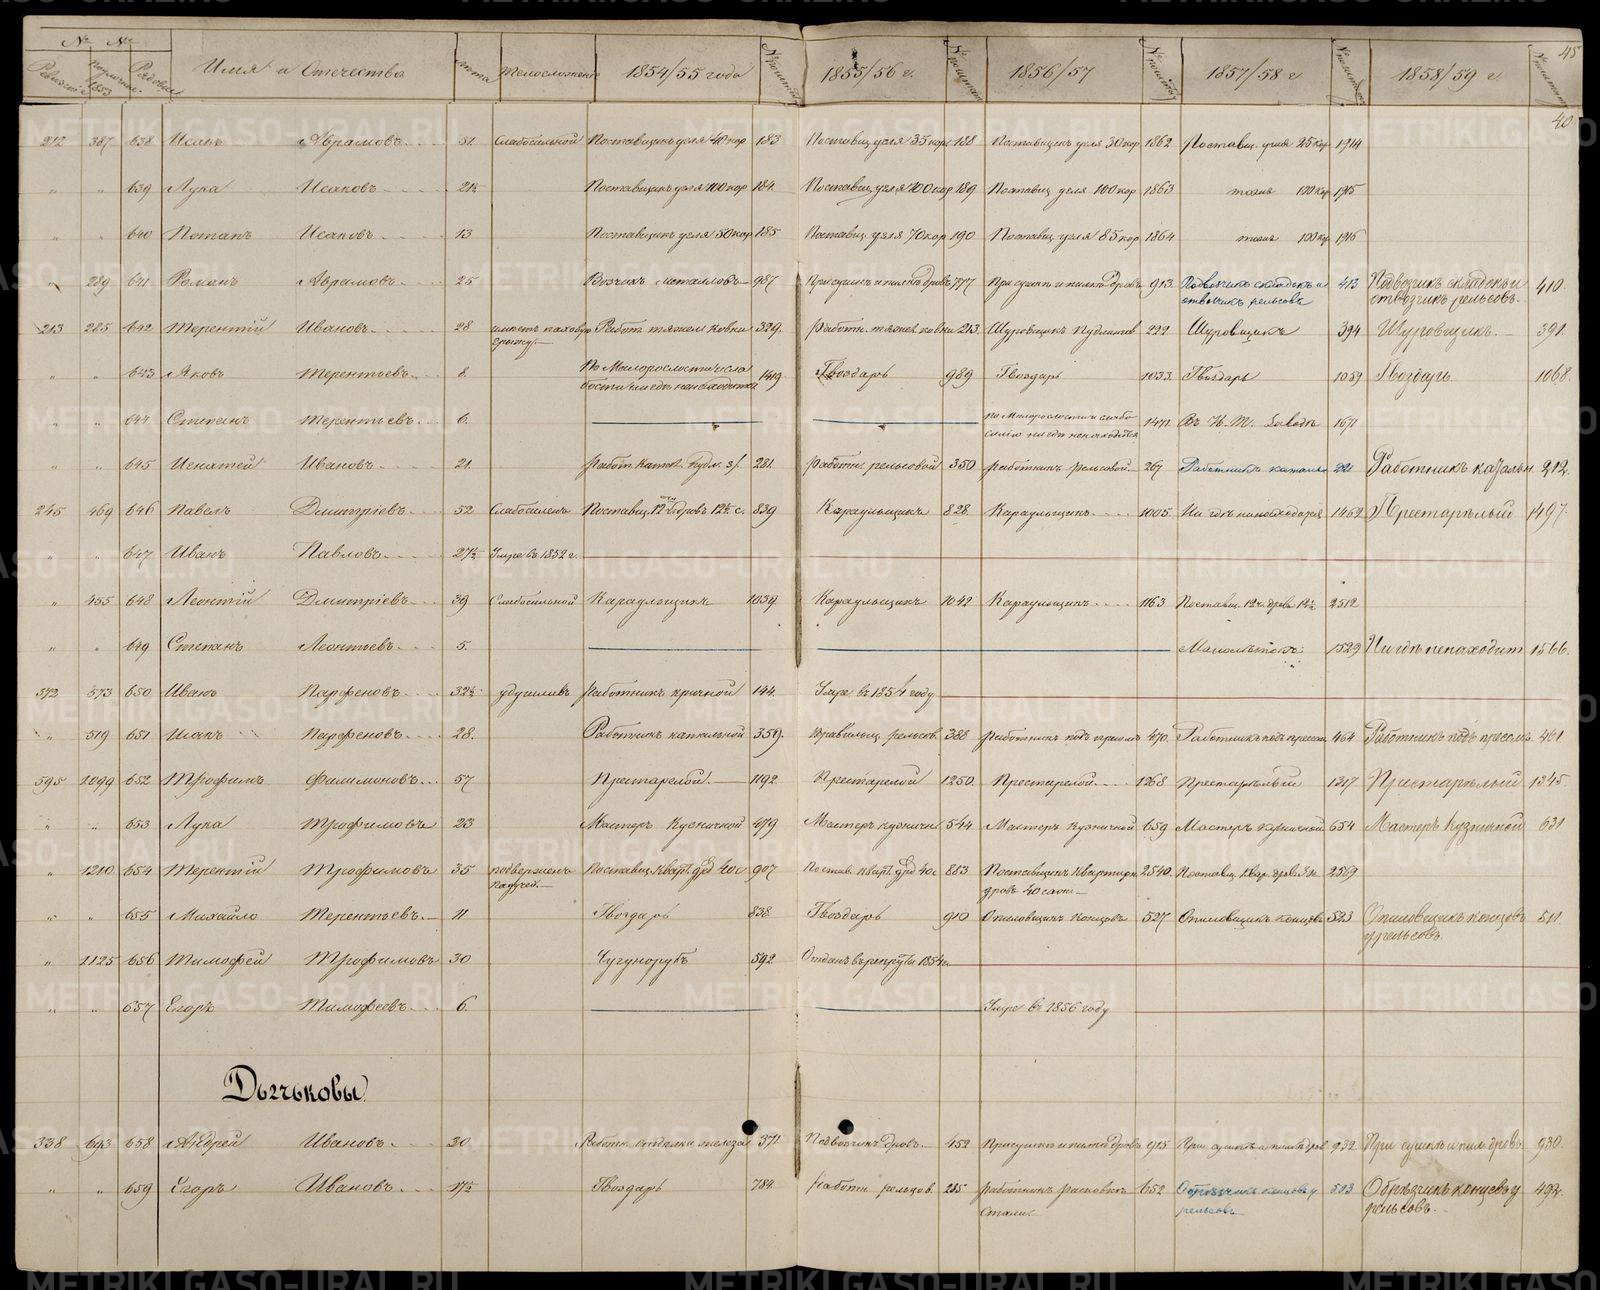 № № Имя и Отчества Лѣта Телосложение 1854/55 года № 1855/56 г. № 1856/57 № 1857/58 г № 1858/59 г № 45
Ревизск. 1853 Рядовые
40
212 387 638 Исакъ Абрамовъ 51. Слабосильной Поставщикъ угля 40 кор 183 Поставщ. угля 35 кор 188 Поставщикъ угля 30 кор 1862 Поставщ. угля 25 кор 1914
" " 639 Лука Исаковъ 21½ Поставщикъ угля 100 кор 184 Поставщ. угля 100 кор 189 Поставщ угля 100 кор 1863 тоже 100 кор 1915
" " 640 Потапъ Исаковъ 13 Поставщикъ угля 50 кор 185 Поставщ. угля 70 кор 190 Поставщ. угля 85 кор 1864 тоже 100 кор 1916
" 289 641 Романъ Абрамовъ 25 Возчикъ металловъ 987 При сушкѣ и пилкѣ дровъ 777 При сушкѣ и пилкѣ дровъ 913 Подвозчикъ складокъ и 413 Подвозчикъ складокъ и 410
отвозчикъ рельсовъ отвозчикъ рельсовъ.
213 285 642 Терентій Ивановъ 28 имѣетъ паховую Работ. тяжел. ковки 329. Работн. тяжел. ковки 213. Шуровщикъ Пудлингов 222 Шуровщикъ 394 Шуровщикъ. 391.
грыжу.
" " 643 Яковъ Терентьевъ 8. По Малорослости и сла 1419 Гвоздарь 989 Гвоздарь 1033. Гвоздарь 1059 Гвоздарь 1068.
бости нигдѣ ненаходится
" " 644 Степанъ Терентьевъ 6. по Малорослости и слабо 1471 Въ Н. Т. Заводѣ 1671
силію нигдѣ ненаходится
" " 645 Игнатей Ивановъ 21. Работ. катал. Пудл. з/. 281. Работн. рельсовой 350 работникъ рельсовой 267 Работникъ катальн 221 Работникъ катальн. 212.
245 469 646 Павелъ Дмитріевъ 52. Слабосиленъ Поставщ. 12 чет. дровъ 12½ с. 839 Караульщикъ 828. Караульщикъ 1005. Нигдѣ ненаходится 1462 Престарѣлый 1497.
" " 647 Иванъ Павловъ 27½ Умре въ 1852 г.
" 455 648 Леонтій Дмитріевъ 39 Слабосильной Караульщикъ 1039. Караульщикъ 1042 Караульщикъ 1163 Поставщ. 12 ч. дровъ 12½ 2512
" " 649 Степанъ Леонтьевъ 5. Малолѣтокъ 1529 Нигдѣ ненаходит. 1566.
572 573 650 Иванъ Парфеновъ 32½ удушливъ работникъ кричной 144. Умре въ 1854 году
" 519 651 Исакъ Парфеновъ 28. Работникъ катальной 359. Правильщ. рельсов. 388 работникъ подъ прессомъ 470. Работникъ подъ прессом 464 Работникъ подъ прессомъ. 461
595 1099 652 Трофимъ Филимоновъ 57 Престарелой. 1192 Престарелой 1250 Престарелой 1268 Престарѣлый 1317 Престарѣлый 1345
" " 653 Лука Трофимовъ 23 Мастеръ Кузничной 479 Мастеръ кузничн 544 Мастеръ Кузничной 659 Мастеръ кузничной 654 Мастеръ Кузничной 631
" 1210 654 Терентій Трофимовъ 35 подверженъ Поставщ. Кварт. др. 40 с 907 Постав. кварт. др 40 с 883 Поставщикъ Квартирн 2540 Поставщ. Квар. дров. 2569
падучей. дровъ 40 саж.
" " 655 Михайло Терентьевъ. 11 Гвоздарь 838 Гвоздарь 910 Опиловщикъ Концовъ 527 Опиловщикъ концовъ 523 Опиловщикъ концовъ 511.
у рельсовъ.
" 1125 656 Тимофей Трофимовъ 30 Чугунорубъ 592. Отданъ въ рекруты 1854 г.
" " 657 Егоръ Тимофеевъ 6. Умре въ 1856 году
Дьячковы
338 643 658 Андрей Ивановъ 30. Работн. отдѣлка железа 371. Подвозчикъ дровъ. 452 При сушкѣ и пилкѣ дровъ 915 При сушкѣ и пилкѣ дров 932 При сушкѣ и пил. дровъ 930.
" " 659 Егоръ Ивановъ 17½ Гвоздарь 784. работн. рельсов. 285 работникъ расковки 652 Обрѣзчикъ концовъ у 503 Обрѣзчикъ концевъ у 492.
Стали. рельсовъ рельсовъ.
METRIKI.GASO-URAL.RU